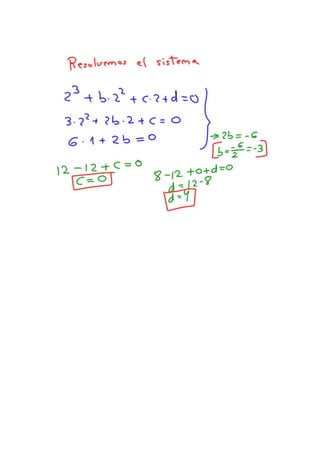 Resolvemos el sistema
2³ + b·2² + c·2+d=0
3·2² + 2b·2 + c = 0
6·1 + 2b = 0
→ 2b = -6
b = -6/2 = -3
12 - 12 + c = 0
c = 0
8 - 12 + 0 + d = 0
d = 12 - 8
d = 4